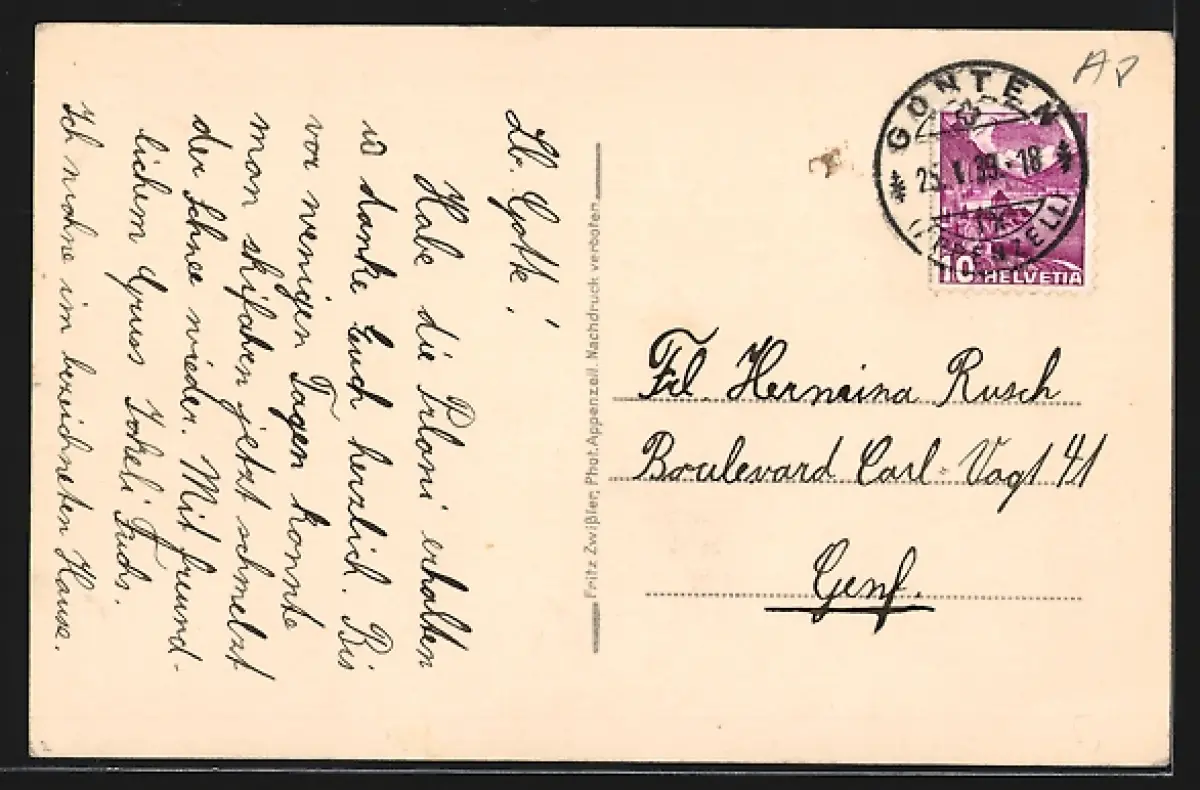 Lb. Gotte!
Habe die Ploni erhalten
u danke Euch herzlich. Bis
vor wenigen Tagen konnte
man skifahren jetzt schmelzt
der Schnee wieder. Mit freund-
lichem Gruss Fuchs.
Ich wohne im bezeichneten Hause.
Fritz Zwißler, Phot. Appenzell. Nachdruck verboten.
GONTEN
25. 39.-18
(APPENZELL)
10 HELVETIA
Frl. Hermina Rusch
Boulevard Carl-Vogt 41
Genf.